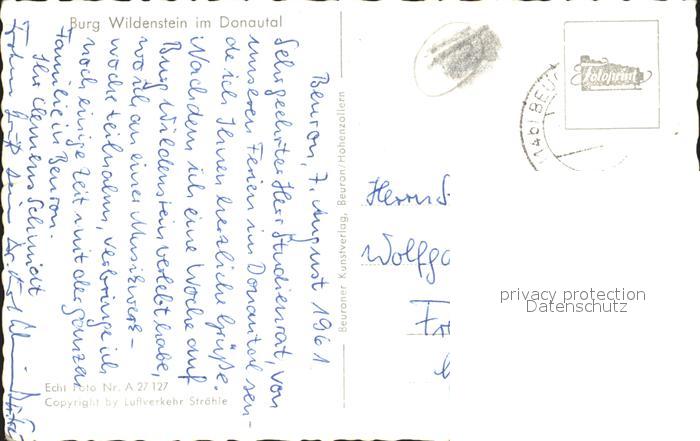 Burg Wildenstein im Donautal
Beuron, 7. August 1961
Sehr geehrter Herr Studienrat, von
unseren Ferien im Donautal sen-
de ich Ihnen herzliche Grüße.
Nachdem ich eine Woche auf
Burg Wildenstein verlebt habe,
wo ich an einer Musikwerk-
woche teilnahm, verbringe ich
noch einige Zeit mit der ganzen
Familie in Beuron.
Ihr Clemens Schmidt
Echt Foto Nr. A 27 127
Copyright by Luftverkehr Strähle
Beuroner Kunstverlag, Beuron/Hohenzollern
fotoprint
(14b) BEU
Herrn S
Wolfga
Fr
privacy protection
Datenschutz